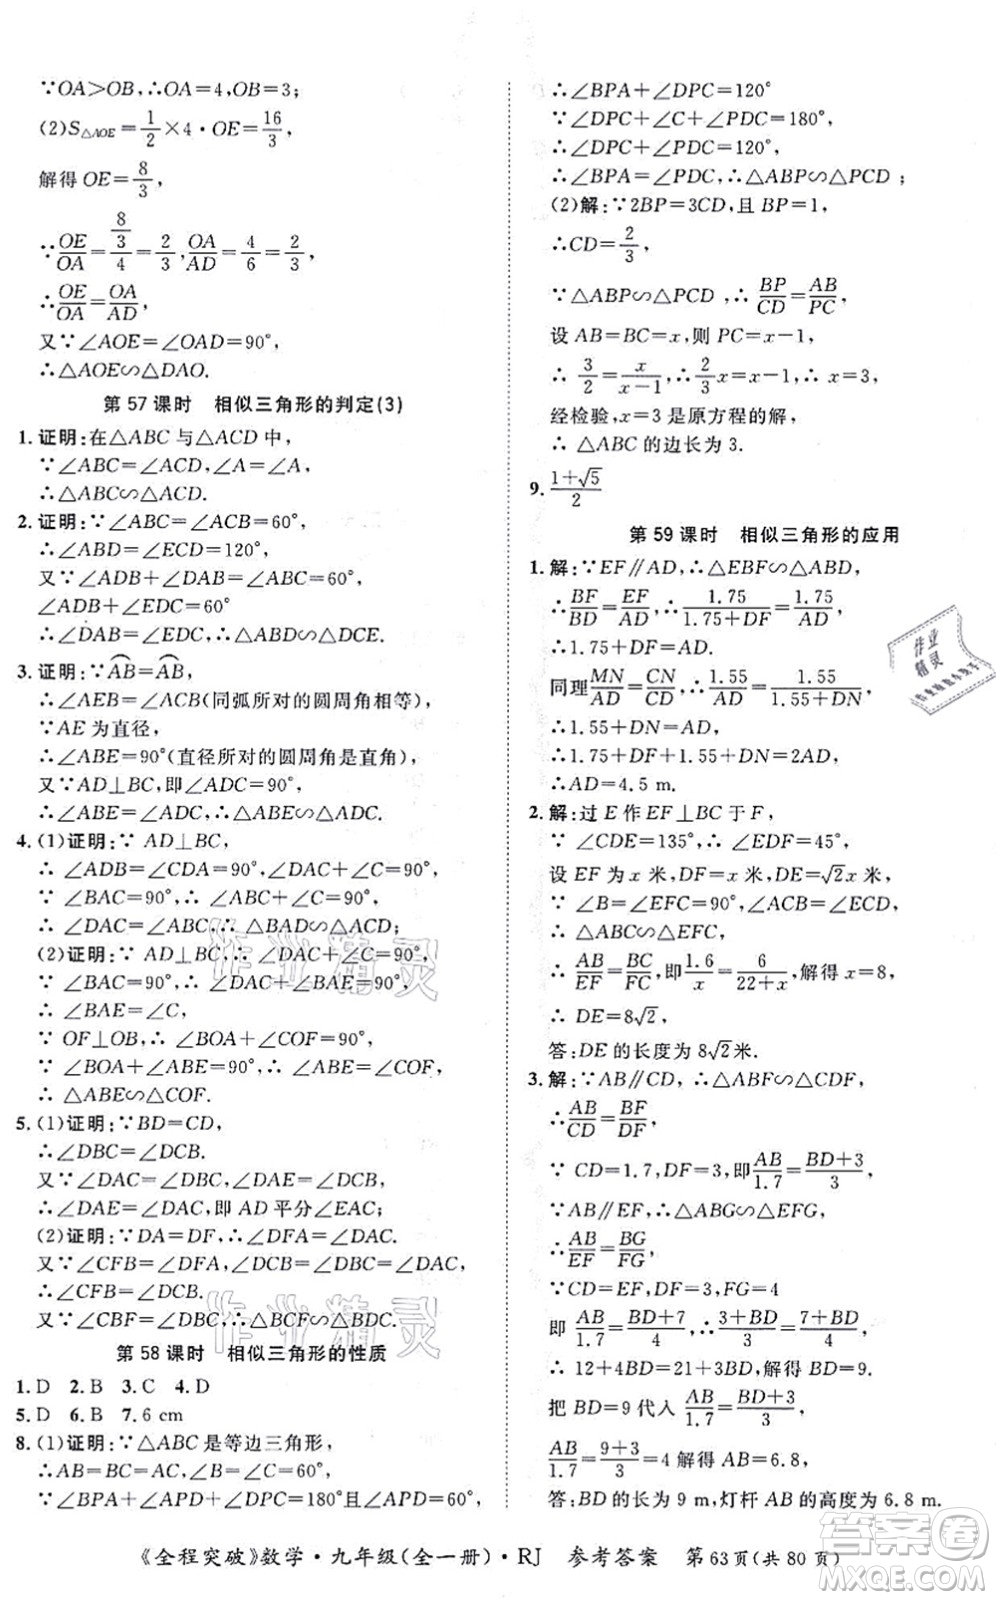 ∵OA>OB,∴OA=4,OB=3;
(2)S△AOE=1/2×4·OE=16/3,
解得OE=8/3,
∵OE/OA=(8/3)/4=2/3,OA/AD=4/6=2/3,
∴OE/OA=OA/AD
又∵∠AOE=∠OAD=90°,
∴△AOE∽△DAO.
第57课时 相似三角形的判定(3)
1.证明:在△ABC与△ACD中,
∵∠ABC=∠ACD,∠A=∠A,
∴△ABC∽△ACD.
2.证明:∵∠ABC=∠ACB=60°,
∴∠ABD=∠ECD=120°,
又∵∠ADB+∠DAB=∠ABC=60°,
∠ADB+∠EDC=60°
∴∠DAB=∠EDC,∴△DAB∽△DCE.
3.证明:∵AB=AB,
∴∠AEB=∠ACB(同弧所对的圆周角相等),
∵AE为直径,
∴∠ABE=90°(直径所对的圆周角是直角),
又∵AD⊥BC,即∠ADC=90°,
∴∠ABE=∠ADC,∴△ABE∽△ADC.
4.(1)证明:∵ AD⊥BC,
∴ ∠ADB=∠CDA=90°,∠DAC+∠C=90°,
∵ ∠BAC=90°,∴ ∠DAC+∠BAD=90°,
∴ ∠DAC=∠ABC,∴ △BAD∽△DAC;
(2)证明:∵ AD⊥BC,∴ ∠DAC+∠C=90°,
∵ ∠BAC=90°,∴ ∠DAC+∠BAE=90°,
∴ ∠BAE=∠C,
∵ OF⊥OB,∴ ∠BOA+∠COF=90°,
∵ ∠BOA+∠ABE=90°,∴ ∠ABE=∠COF,
∴ △ABE∽△COF.
5.(1)证明:∵BD=CD,
∴∠DBC=∠DCB.
又∵∠DAC=∠DBC,∠DAE=∠DCB,
∴∠DAE=∠DAC,即AD平分∠EAC;
(2)证明:∵DA=DF,∴∠DFA=∠DAF.
又∵∠CFB=∠DFA,∠DCB=∠DAE,
∴∠CFB=∠DCB.
又∵∠CBF=∠DBC,∴△BCF∽△BDC.
第58课时 相似三角形的性质
1.D 2.B 3.C 4.D
5.D 6.B 7.6 cm
8.(1)证明:∵△ABC是等边三角形,
∴AB=BC=AC,∠B=∠C=60°,
∵∠BPA+∠APD+∠DPC=180°且∠APD=60°,
∴∠BPA+∠DPC=120°
∵∠DPC+∠C+∠PDC=180°,
∴∠DPC+∠PDC=120°,
∴∠BPA=∠PDC,∴△ABP∽△PCD;
(2)解:∵2BP=3CD,且BP=1,
∴CD=2/3,
∵△ABP∽△PCD,∴BP/CD=AB/PC,
设AB=BC=x,则PC=x-1,
∴ 3/2=x/(x-1),∴2/3 x=x-1,∴x=3,
经检验,x=3是原方程的解,
∴ △ABC的边长为3.
9.(1+√5)/2
第59课时 相似三角形的应用
1.解:∵EF∥AD,∴△EBF∽△ABD,
∴BF/BD=EF/AD,∴1.75/(1.75+DF)=1.75/AD,
∴1.75+DF=AD,
同理MN/AD=CN/CD,∴1.55/AD=1.55/(1.55+DN)
∴1.55+DN=AD,
∴1.75+DF+1.55+DN=2AD,
∴AD=4.5 m.
2.解:过E作EF⊥BC于F,
∵ ∠CDE=135°,∴∠EDF=45°,
设EF为x米,∴DF=x米,DE=√2x米,
∵ ∠B=∠EFC=90°,∵∠ACB=∠ECD,
∴ △ABC∽△EFC,
∴ AB/EF=BC/FC,即1.6/x=6/(22+x),解得x=8,
∴ DE=8√2,
答:DE的长度为8√2米.
3.解:∵AB∥CD,∴△ABF∽△CDF,
∴AB/CD=BF/DF,
∵ CD=1.7,DF=3,即AB/1.7=(BD+3)/3,
∵AB∥EF,∴△ABG∽△EFG,
∴AB/EF=BG/FG
∵CD=EF,DF=3,FG=4
即 AB/1.7=(BD+7)/4,∴(BD+3)/3=(BD+7)/4
∴ 12+4BD=21+3BD,解得BD=9,
把BD=9代入AB/1.7=(BD+3)/3,
AB/1.7=(9+3)/3=4,解得AB=6.8,
答:BD的长为9 m,灯杆AB的高度为6.8 m.
《全程突破》数学·九年级(全一册)·RJ 参考答案 第63页(共80页)
作业精灵
作业精灵
作业精灵
作业精灵
MXQE.COM